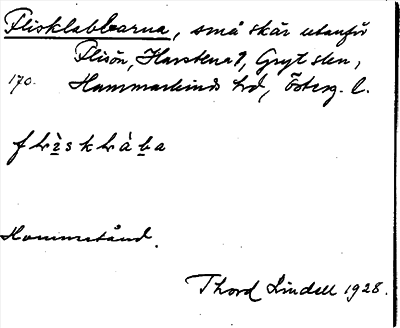 Flisklabbarna, små skär utanför
Flisön, Harstena 1, Gryt skn,
170. Hammarkinds hd, Österg. l.
Hommstånd.
Thord Lindell 1928.